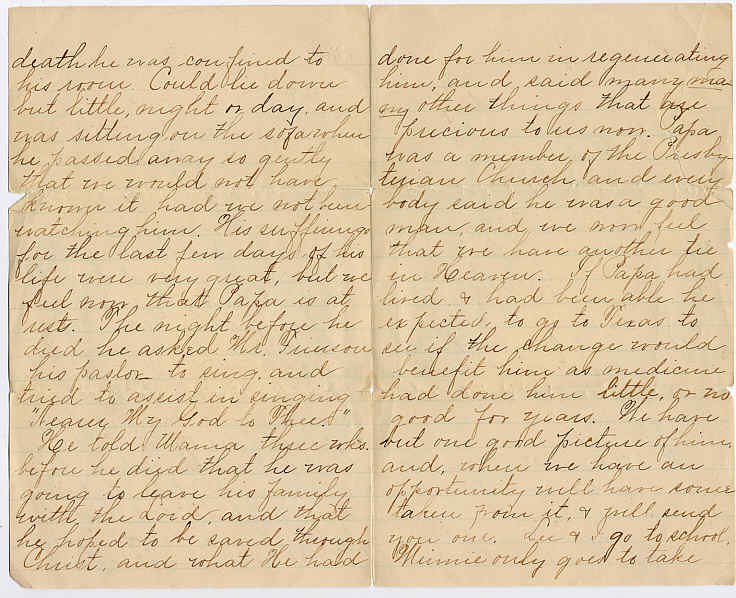 death he was, confined to
his room. Could lie down
but little, night or day, and
was sitting on the sofa when
he passed away so gently
that we would not have
known it had we not been
watching him. His sufferings
for the last few days of his
life were very great, but we
feel now, that Papa is at
rest. The night before he
died he asked Mr.
his pastor to sing, and
tried to assist in singing
"Nearer My God to Thee"
He told Mama three wks.
before he died that he was
going to leave his family
with the Lord, and that
he hoped to be saved through
Christ, and what He had
done for him in regenerating
him, and said many ma
ny other things that are
precious to us now. Papa
was a member of the Presby-
terian Church, and every
body said he was a good
man, and we now feel
that we have another tie
in Heaven. If Papa had
lived & had been able he
expected, to go to Texas to
see if the change would
benefit him as medicine
had done him little, or no
good for years. We have
but one good picture of him,
and, when we have an
opportunity will have some
taken from it, & will send
you one. Lee & I go to school,
Minnie only goes to take